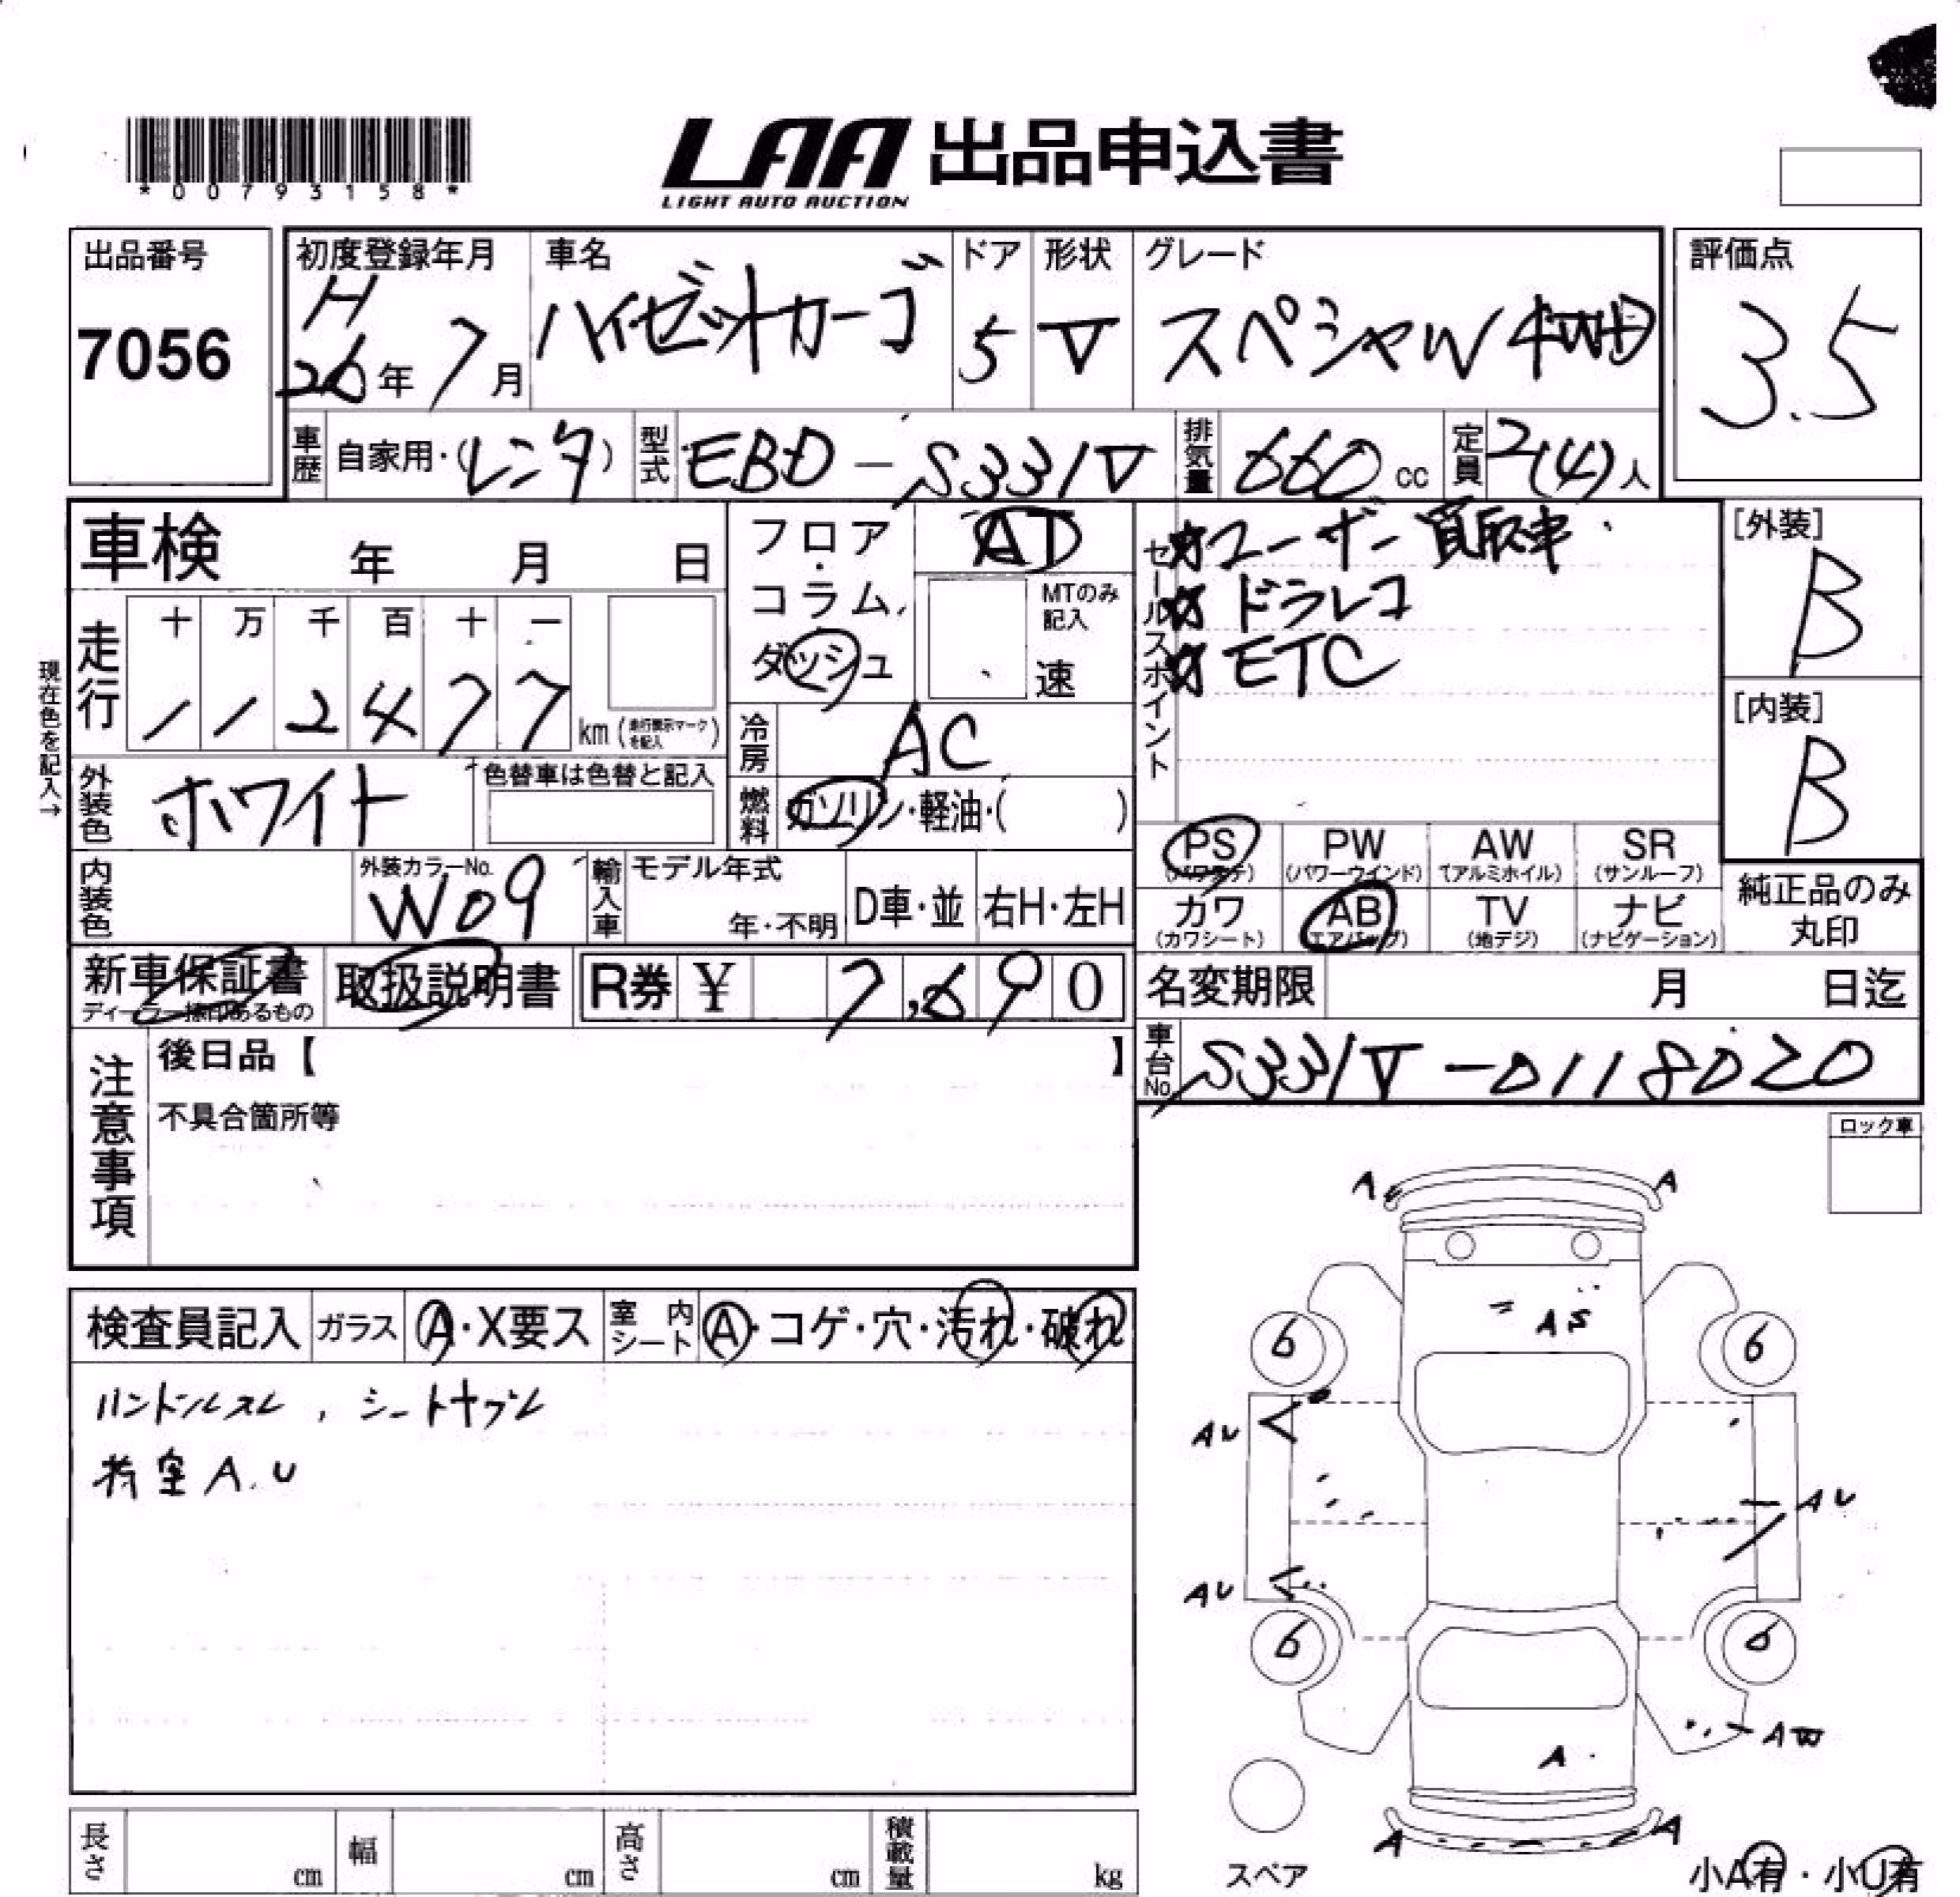 *00793158*
LAA 出品申込書
LIGHT AUTO AUCTION
出品番号
7056
初度登録年月
H
26年 7月
車名
ハイゼットカーゴ
ドア
5
形状
V
グレード
スペシャル 4WD
評価点
3.5
車歴
自家用・(レンタ)
型式
EBD-S331V
排気量
660 cc
定員
2(4)人
車検 年 月 日
現在色を記入→
走行
十 万 千 百 十 一
1 1 2 4 7 7
km(走行表示マークを記入)
フロア
・
コラム
・
ダッシュ
AT
MTのみ
記入
速
セールスポイント
☆ユーザー買取車
☆ドラレコ
☆ETC
[外装]
B
[内装]
B
外装色
ホワイト
色替車は色替と記入
冷房
AC
燃料
ガソリン・軽油・( )
PS
(パワステ)
PW
(パワーウインド)
AW
(アルミホイル)
SR
(サンルーフ)
カワ
(カワシート)
AB
(エアバッグ)
TV
(地デジ)
ナビ
(ナビゲーション)
純正品のみ
丸印
内装色
外装カラーNo.
W09
輸入車
モデル年式
年・不明
D車・並
右H・左H
新車保証書
取扱説明書
R券 ¥ 7,690
名変期限 月 日迄
車台No.
S331V-0118020
注意事項
後日品【 】
不具合箇所等
ロック車
検査員記入
ガラス
A・X要ス
室内シート
A・コゲ・穴・汚れ・破れ
ハンドルスレ,シートヤブレ
荷室A.U
A
A
AS
6
6
AU
AU
AU
6
6
AW
A
A
A
スペア
小A有・小U有
長さ cm
幅 cm
高さ cm
積載量 kg